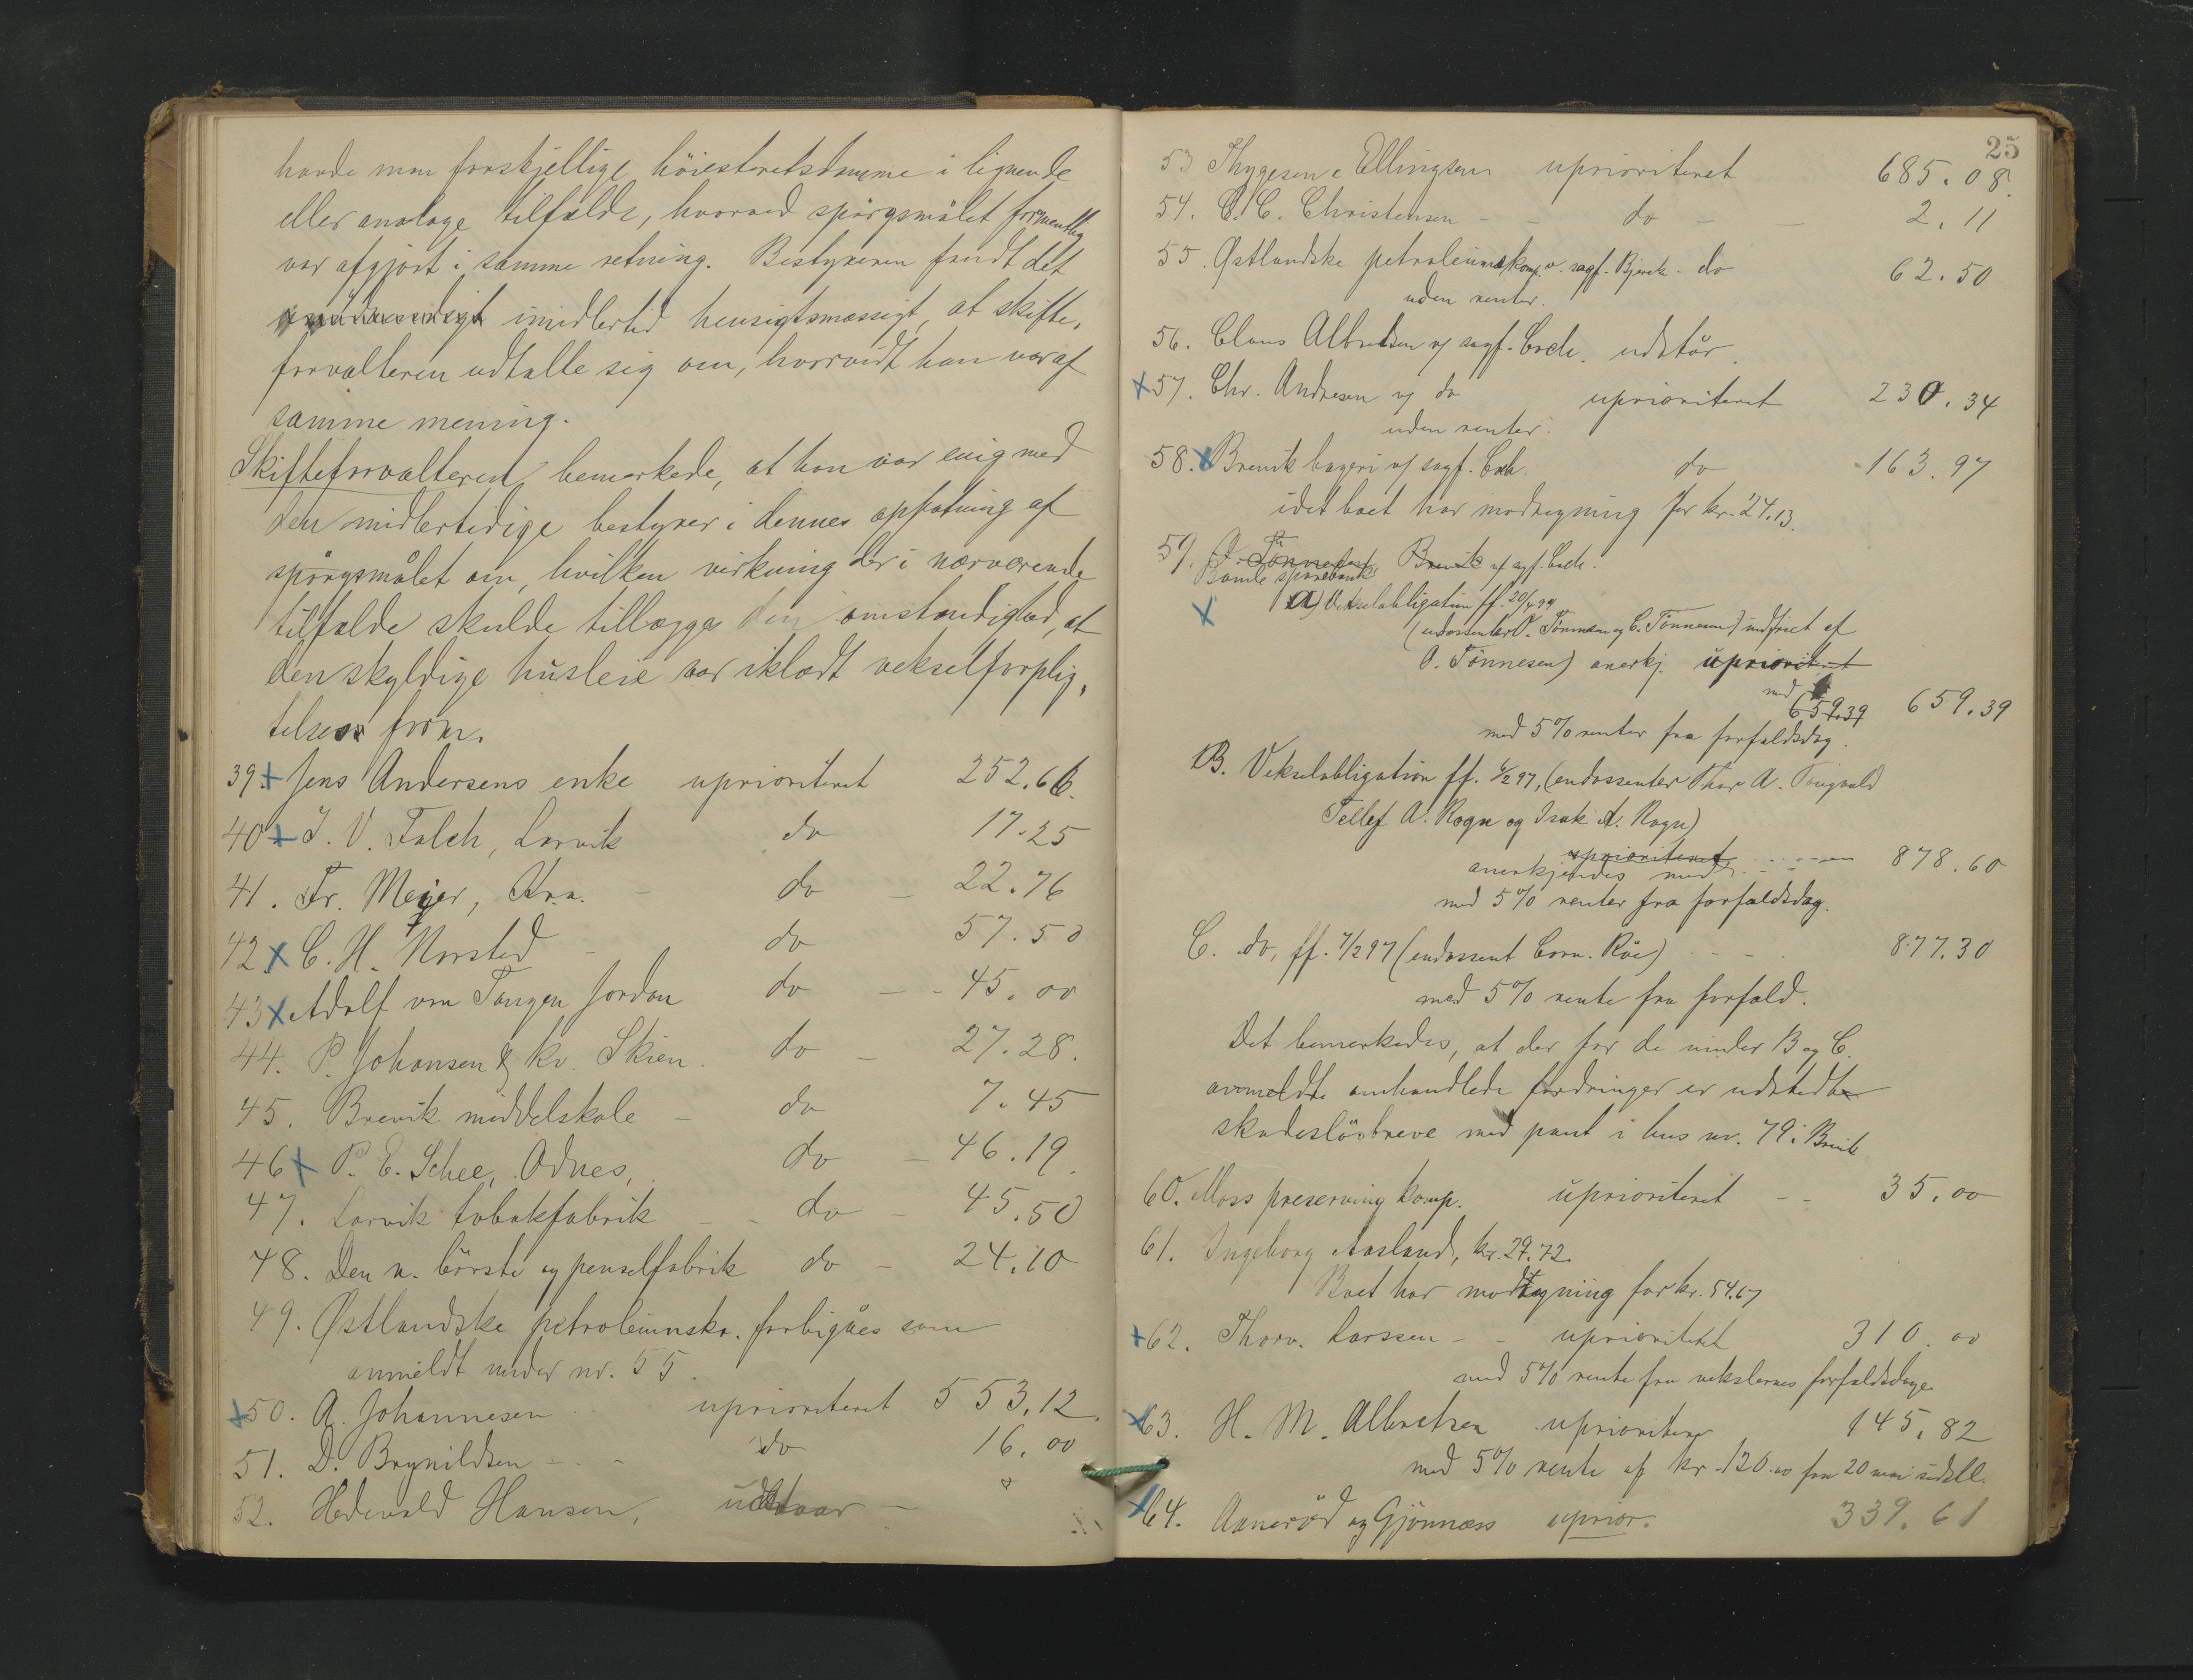 havde man forskjellige höiesteretsdomme i lignende
eller analoge tilfælde, hvorved spörgsmålet formentlig
var afgjort i samme retning. Bestyreren fandt det
imidlertid hensigtsmæssigt, at skifte,
forvalteren udtalte sig om, hvorvidt han var af
samme mening.
Skifteforvalteren bemærkede, at han var enig med
den midlertidige bestyrer i dennes opfatning af
spörgsmålet om, hvilken virkning der i nærværende
tilfælde skulde tillægges den omstændighed, at
den skyldige husleie var iklædt vekselforplig,
telsens form.
39. x Jens Andersens enke uprioriteret 252.66.
40 x J. V. Falch, Larvik do 17.25
41. Fr. Meyer, Kra. - do - 22.76
42 x C. H. Norsted - do 57.50
43 x Adolf von Tangen Jordan do - - 45.00
44. P. Johansen & ko. Skien. do - 27.28.
45. Brevik middelskole - do 7.45
46 x P. E. Schee, Odnes, do - 46.19.
47. Larvik tobakfabrik - - do - 45.50
48. Den n. börste og penselfabrik do - 24.10
49. Østlandske petroleumsko. forbigåes som
anmeldt under nr. 55.
x 50. A. Johannesen uprioriteret 553.12.
51. D. Brynildsen - - - do 16.00
52. Hedevald Hansen, udstaar -
25
53 Thygesen & Ellingsen uprioriteret 685.08.
54. C. C. Christensen - - do - - 2.11
55. Østlandske petroleumskomp. v. sagf. Bjerck - do 62.50
uden renter.
56. Claus Albretsen v/ sagf. Coch. udstår.
x 57. Chr. Andresen v/ do uprioriteret 230.34
uden renter.
58. x Brevik bageri v/ sagf. Coch. do 163.97
idet boet har modregning for kr. 24.13.
59. O. Tönnesen Brevik v/ sagf. Coch.
Bamle sparebank
x a) Vekselobligation ff. 20/4 99
(endossenter O. Tönnesen og C. Tönnesen) indfriet af
O. Tönnesen) anerkj. uprioriteret
med 659.39 659.39
med 5% renter fra forfaldsdag.
B. Vekselobligation ff. 6/2 97, (endossenter Thor A. Tangvald
Tellef A. Rogn og Isak A. Rogn)
uprioriteret
anerkjendes med - - - 878.60
med 5% renter fra forfaldsdag.
C. do, ff. 7/2 97 (endossent Corn. Röe) - - - 877.30
med 5% rente fra forfald.
Det bemerkedes, at der for de under B og C.
anmeldte omhandlede fordringer er udstedt
skadeslösbreve med pant i hus nr. 79 i Brevik
60. Moss preserving komp. uprioriteret - - 35.00
61. Ingeborg Aasland, kr. 29.72.
Boet har modregning for kr. 54.67
x 62. Thorv. Larssen - - uprioritet 310.00
med 5% rente fra vekslernes forfaldsdage.
x 63. H. M. Albretsen uprioriteret 145.82
med 5% rente af kr. 120.00 fra 20 mai sidstl.
x 64. Aanerød og Gjönnæss uprior. 339.61